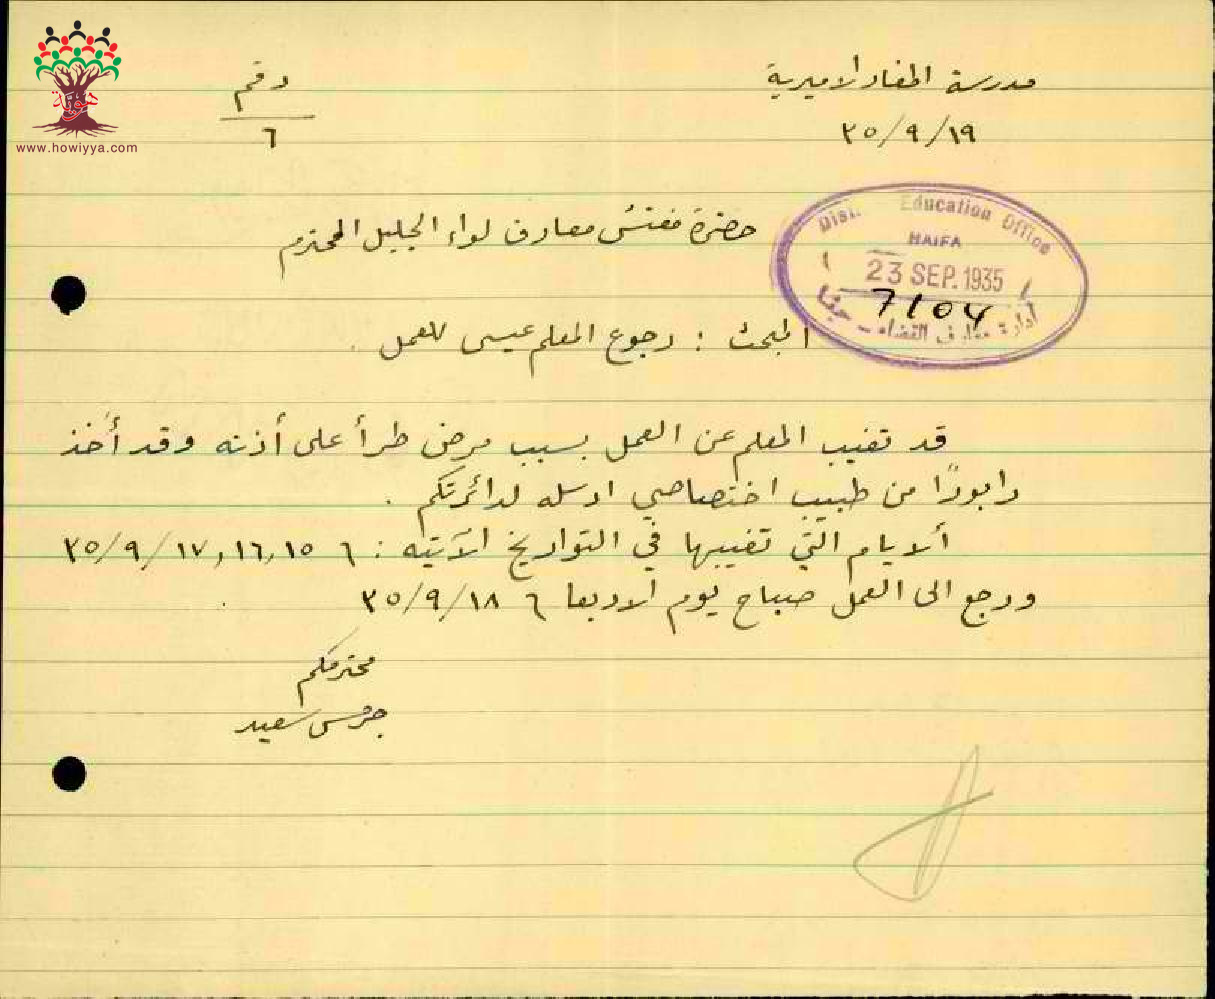 مدرسة المغار الاميرية
رقم
٦
٣٥/٩/١٩
هوية
www.howiyya.com
حضرة مفتش معارف لواء الجليل المحترم
Dist. Education Office
HAIFA
23 SEP. 1935
7104
أدارة معارف القضاء - حيفا
المبحث : رجوع المعلم عيسى للعمل .
قد تغيب المعلم عن العمل بسبب مرض طرأ على أذنه وقد أخذ
رابورًا من طبيب اختصاصي ارسله لدائرتكم .
ألايام التي تغيبها في التواريخ الآتيه : ٦ ١٥,١٦,١٧/٩/٣٥
ورجع الى العمل صباح يوم الاربعا ٦ ١٨/٩/٣٥ .
محترمكم
جرجس سعيد